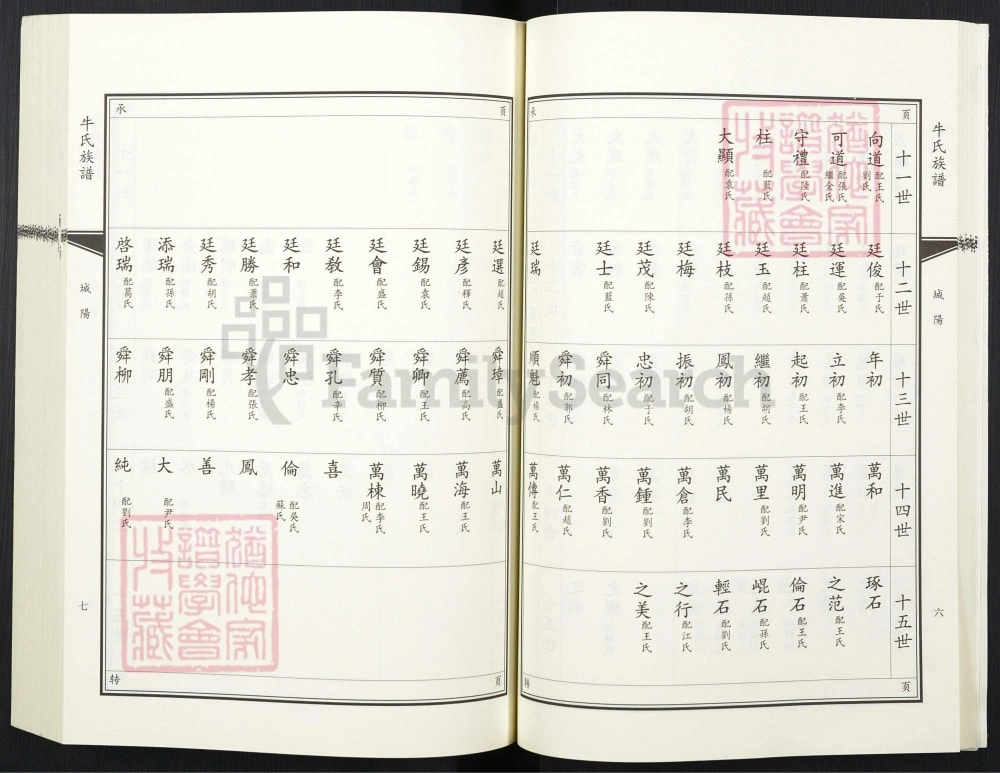 牛氏族譜
城陽
六
承 頁
十一世
向道 配王氏 劉氏
可道 配張氏 繼金氏
守禮 配陸氏
柱 配藍氏
大顯 配袁氏
十二世
廷俊 配于氏
廷運 配吳氏
廷柱 配蕭氏
廷玉 配趙氏
廷枝 配孫氏
廷梅
廷茂 配陳氏
廷士 配藍氏
廷瑞
十三世
年初
立初 配李氏
起初 配王氏
繼初 配胡氏
鳳初 配楊氏
振初 配胡氏
忠初 配于氏
舜同 配林氏
舜初 配郭氏
順魁 配楊氏
十四世
萬和
萬進 配宋氏
萬明 配尹氏
萬里 配劉氏
萬民
萬倉 配李氏
萬鍾 配劉氏
萬香 配劉氏
萬仁 配趙氏
萬傳 配王氏
十五世
琢石
之范 配王氏
倫石 配王氏
崐石 配孫氏
輕石 配劉氏
之行 配江氏
之美 配王氏
转 頁
承 頁
廷選 配趙氏
廷彥 配釋氏
廷錫 配袁氏
廷會 配盛氏
廷教 配李氏
廷和
廷勝 配蕭氏
廷秀 配胡氏
添瑞 配孫氏
啓瑞 配萬氏
舜璋 配藍氏
舜薦 配高氏
舜卿 配王氏
舜質 配柳氏
舜孔 配辛氏
舜忠
舜孝 配張氏
舜剛 配楊氏
舜朋 配盛氏
舜柳
萬山
萬海 配王氏
萬曉 配王氏
萬棟 配李氏 周氏
喜
倫 配吳氏 蘇氏
鳳
善
大 配尹氏
純 配劉氏
转 頁
牛氏族譜
城陽
七
FamilySearch